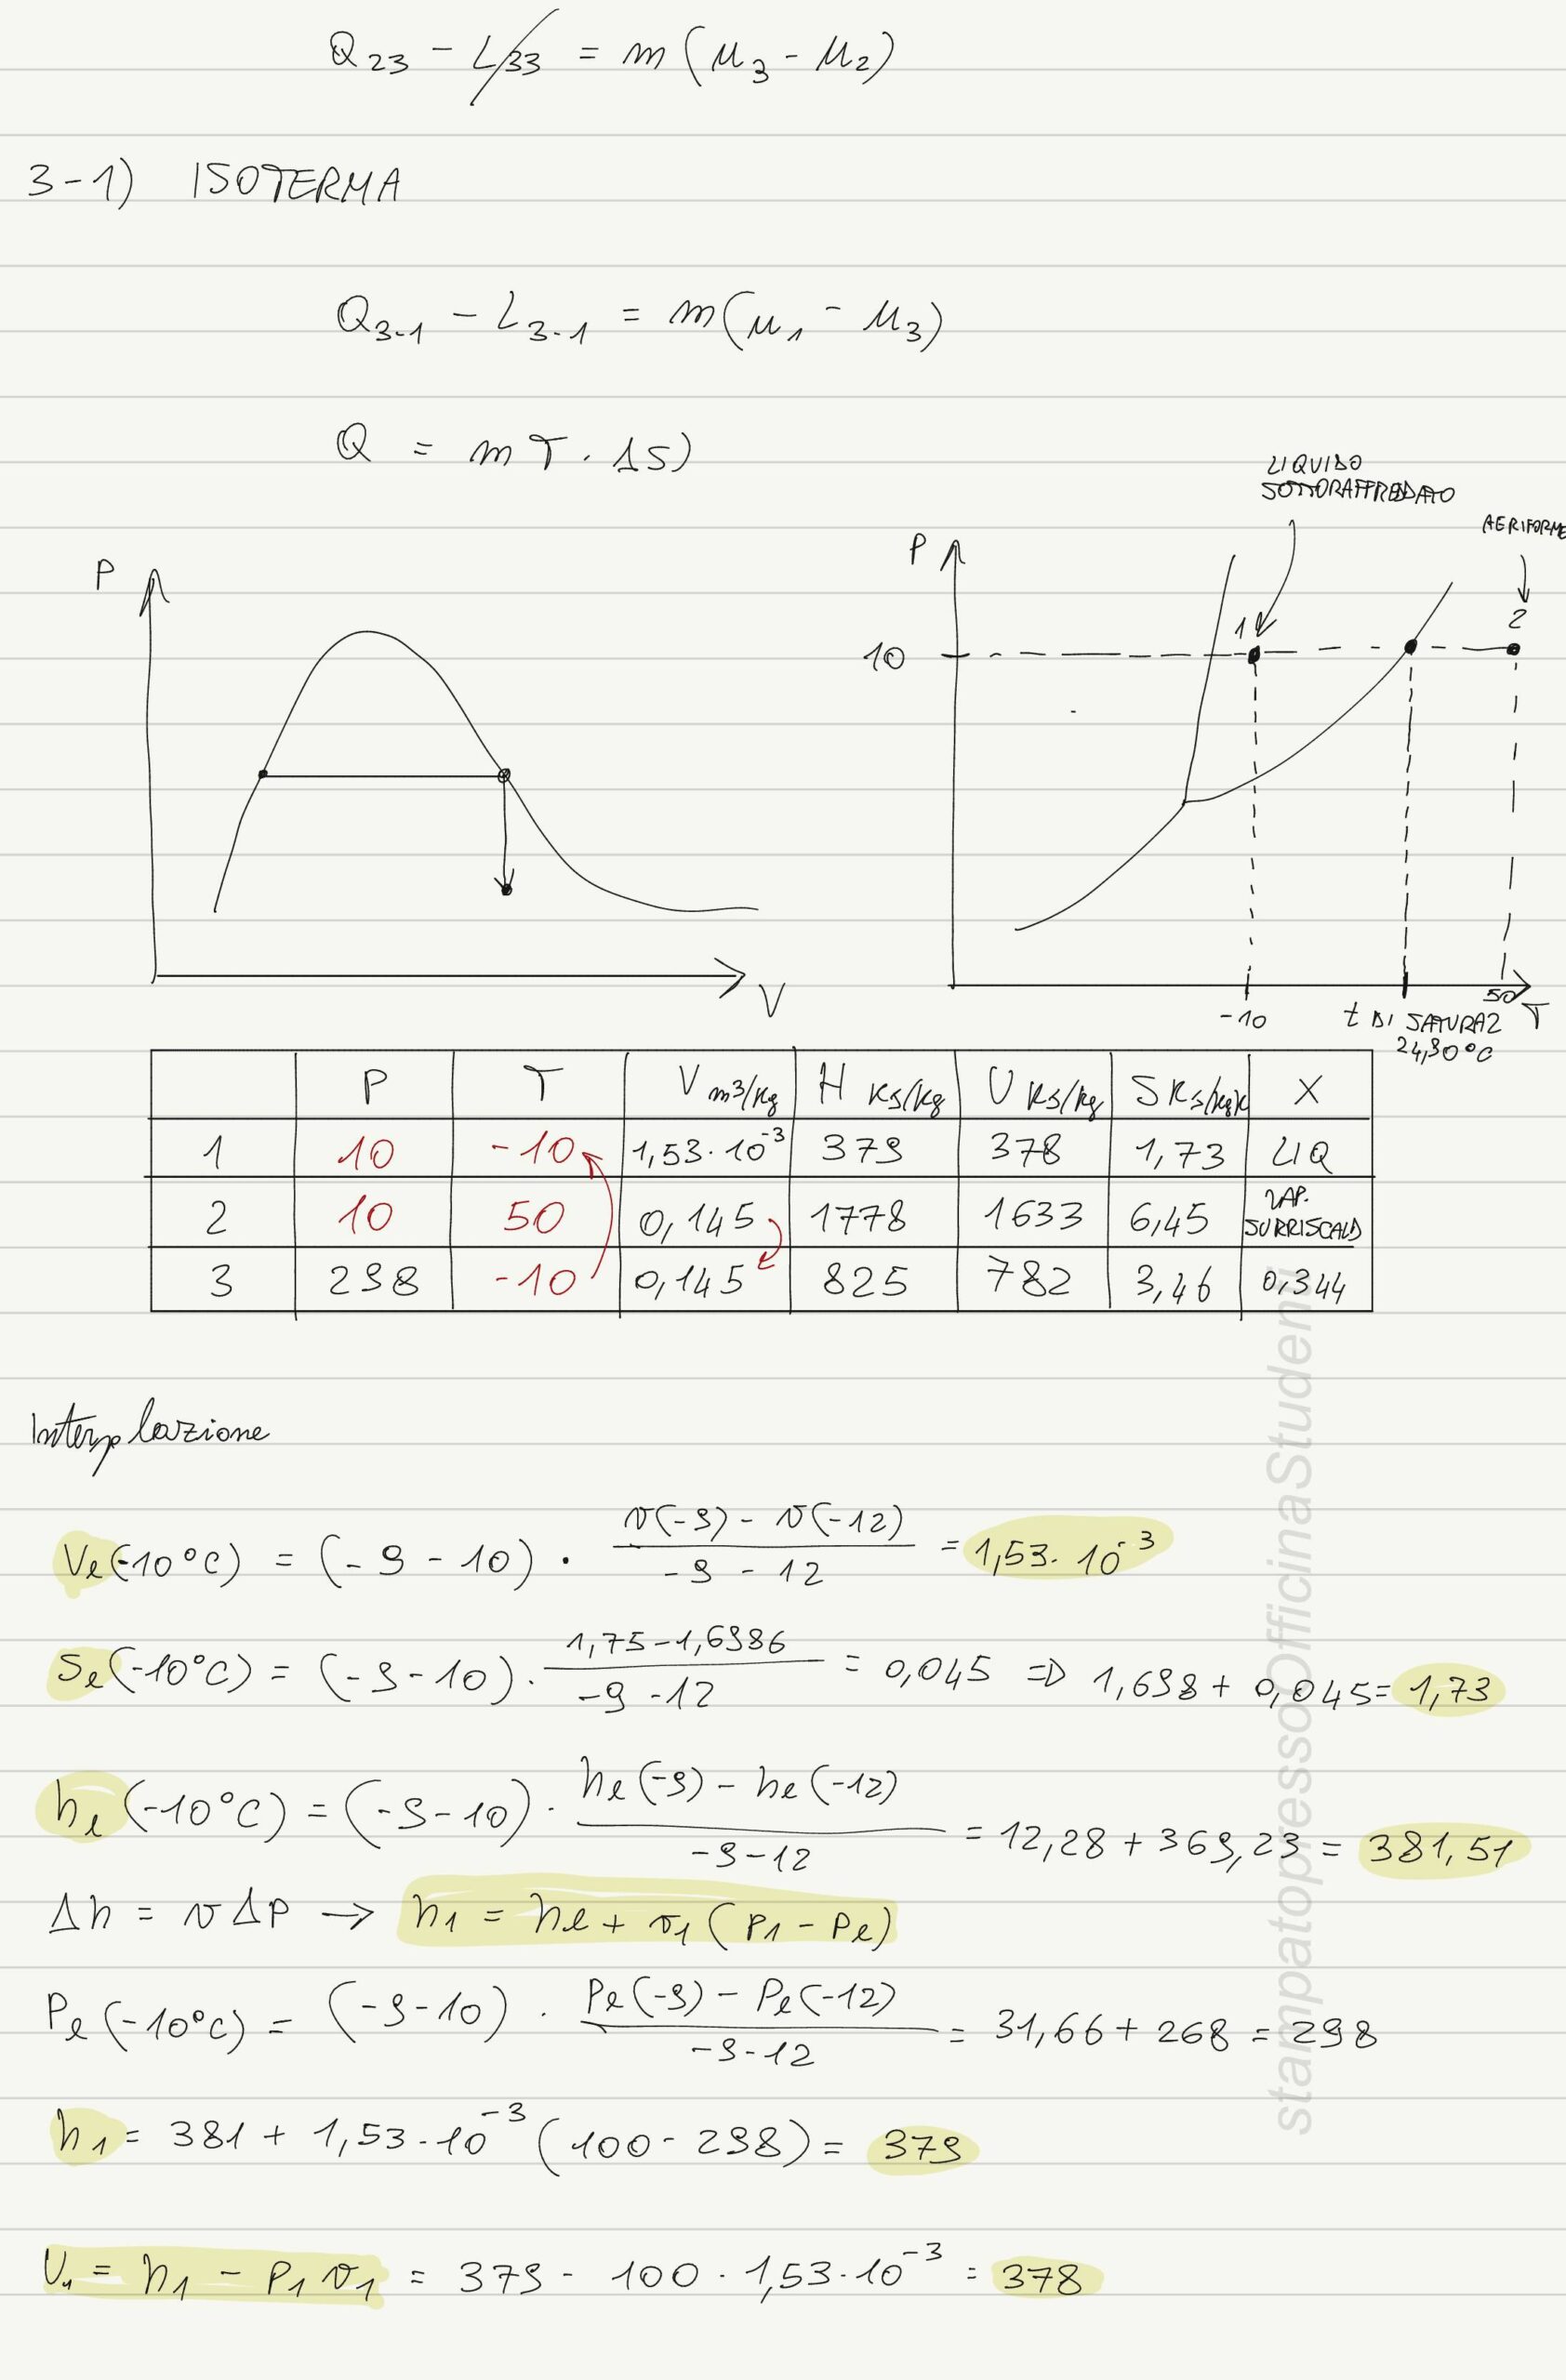 Q23 - L33 = m(u3 - u2)
3-1) ISOTERMA
Q3-1 - L3-1 = m(u1 - u3)
Q = mT · ΔS)
LIQUIDO
SOTTORAFFREDDATO
AERIFORME
P
P
10
1
2
V
-10
t DI SATURAZ
24,90°C
50
T
P T V m³/kg H KJ/kg U KJ/kg S KJ/kgK X
1 10 -10 1,53·10⁻³ 379 378 1,73 LIQ
2 10 50 0,145 1778 1633 6,45 VAP. SURRISCALD
3 298 -10 0,145 825 782 3,46 0,344
Interpolazione
Vl(-10°C) = (-9-10) · v(-9) - v(-12) / -9-12 = 1,53·10⁻³
Sl(-10°C) = (-9-10) · 1,75-1,6986 / -9-12 = 0,045 => 1,698 + 0,045 = 1,73
hl(-10°C) = (-9-10) · hl(-9) - hl(-12) / -9-12 = 12,28 + 369,23 = 381,51
Δh = vΔP → h1 = hl + v1(P1 - Pl)
Pl(-10°C) = (-9-10) · Pl(-9) - Pl(-12) / -9-12 = 31,66 + 268 = 298
h1 = 381 + 1,53·10⁻³(100 - 298) = 379
U1 = h1 - P1v1 = 379 - 100 · 1,53·10⁻³ = 378
stampatopressoOfficinaStudenti